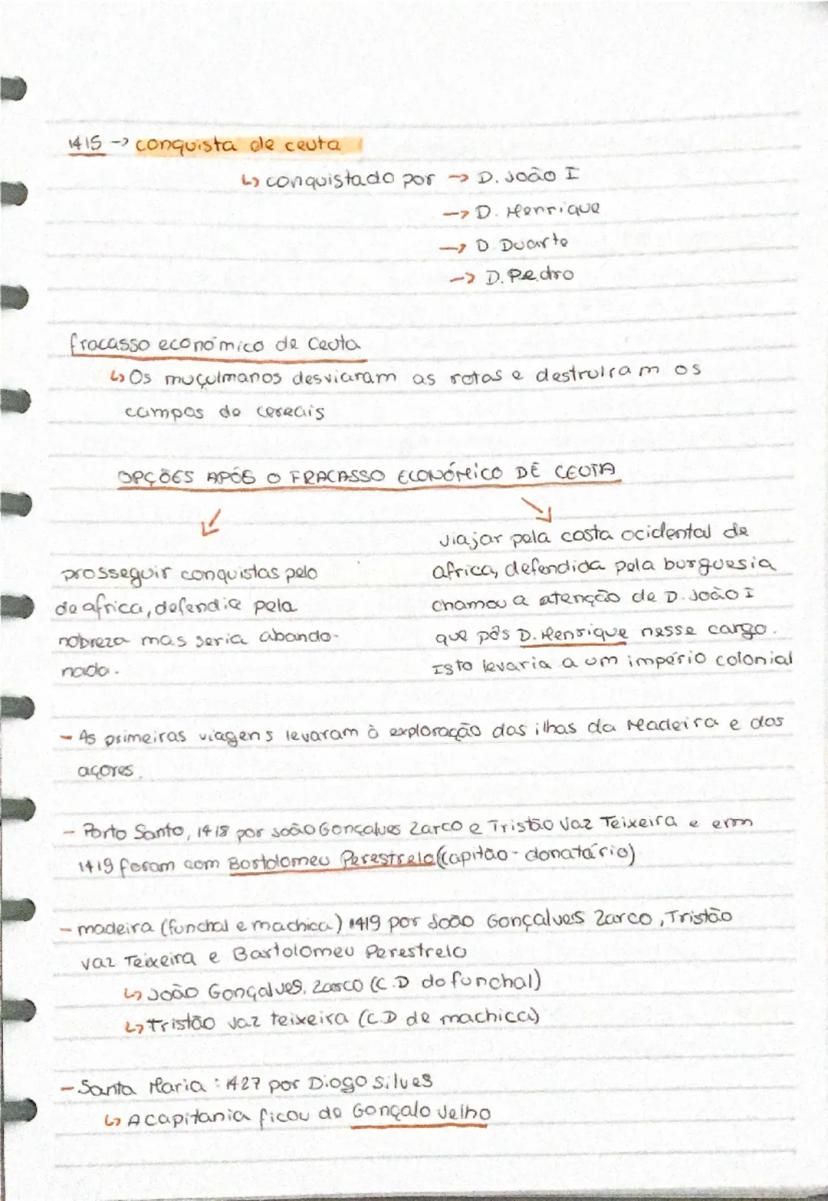 1415 -> conquista de ceuta
↳ conquistado por -> D. João I
-> D. Henrique
-> D. Duarte
-> D. Pedro
fracasso económico de Ceuta
↳ Os muçulmanos desviaram as rotas e destruiram os
campos de cereais
OPÇÕES APÓS O FRACASSO ECONÓMICO DE CEUTA
prosseguir conquistas pelo
de africa, defendia pela
nobreza mas seria abando-
nada.
viajar pela costa ocidental de
africa, defendida pela burguesia
chamou a atenção de D. João I
que pôs D. Henrique nesse cargo.
Isto levaria a um império colonial
- As primeiras viagens levaram à exploração das ilhas da Madeira e dos
açores.
- Porto Santo, 1418 por João Gonçalves Zarco e Tristão Vaz Teixeira e em
1419 foram com Bartolomeu Perestrelo (capitão-donatário)
- madeira (funchal e machica) 1419 por João Gonçalves Zarco, Tristão
vaz Teixeira e Bartolomeu Perestrelo
↳ João Gonçalves. Zarco (C.D do funchal)
↳ Tristão vaz teixeira (C.D de machica)
- Santa Maria: 1427 por Diogo Silves
↳ A capitania ficou de Gonçalo Velho